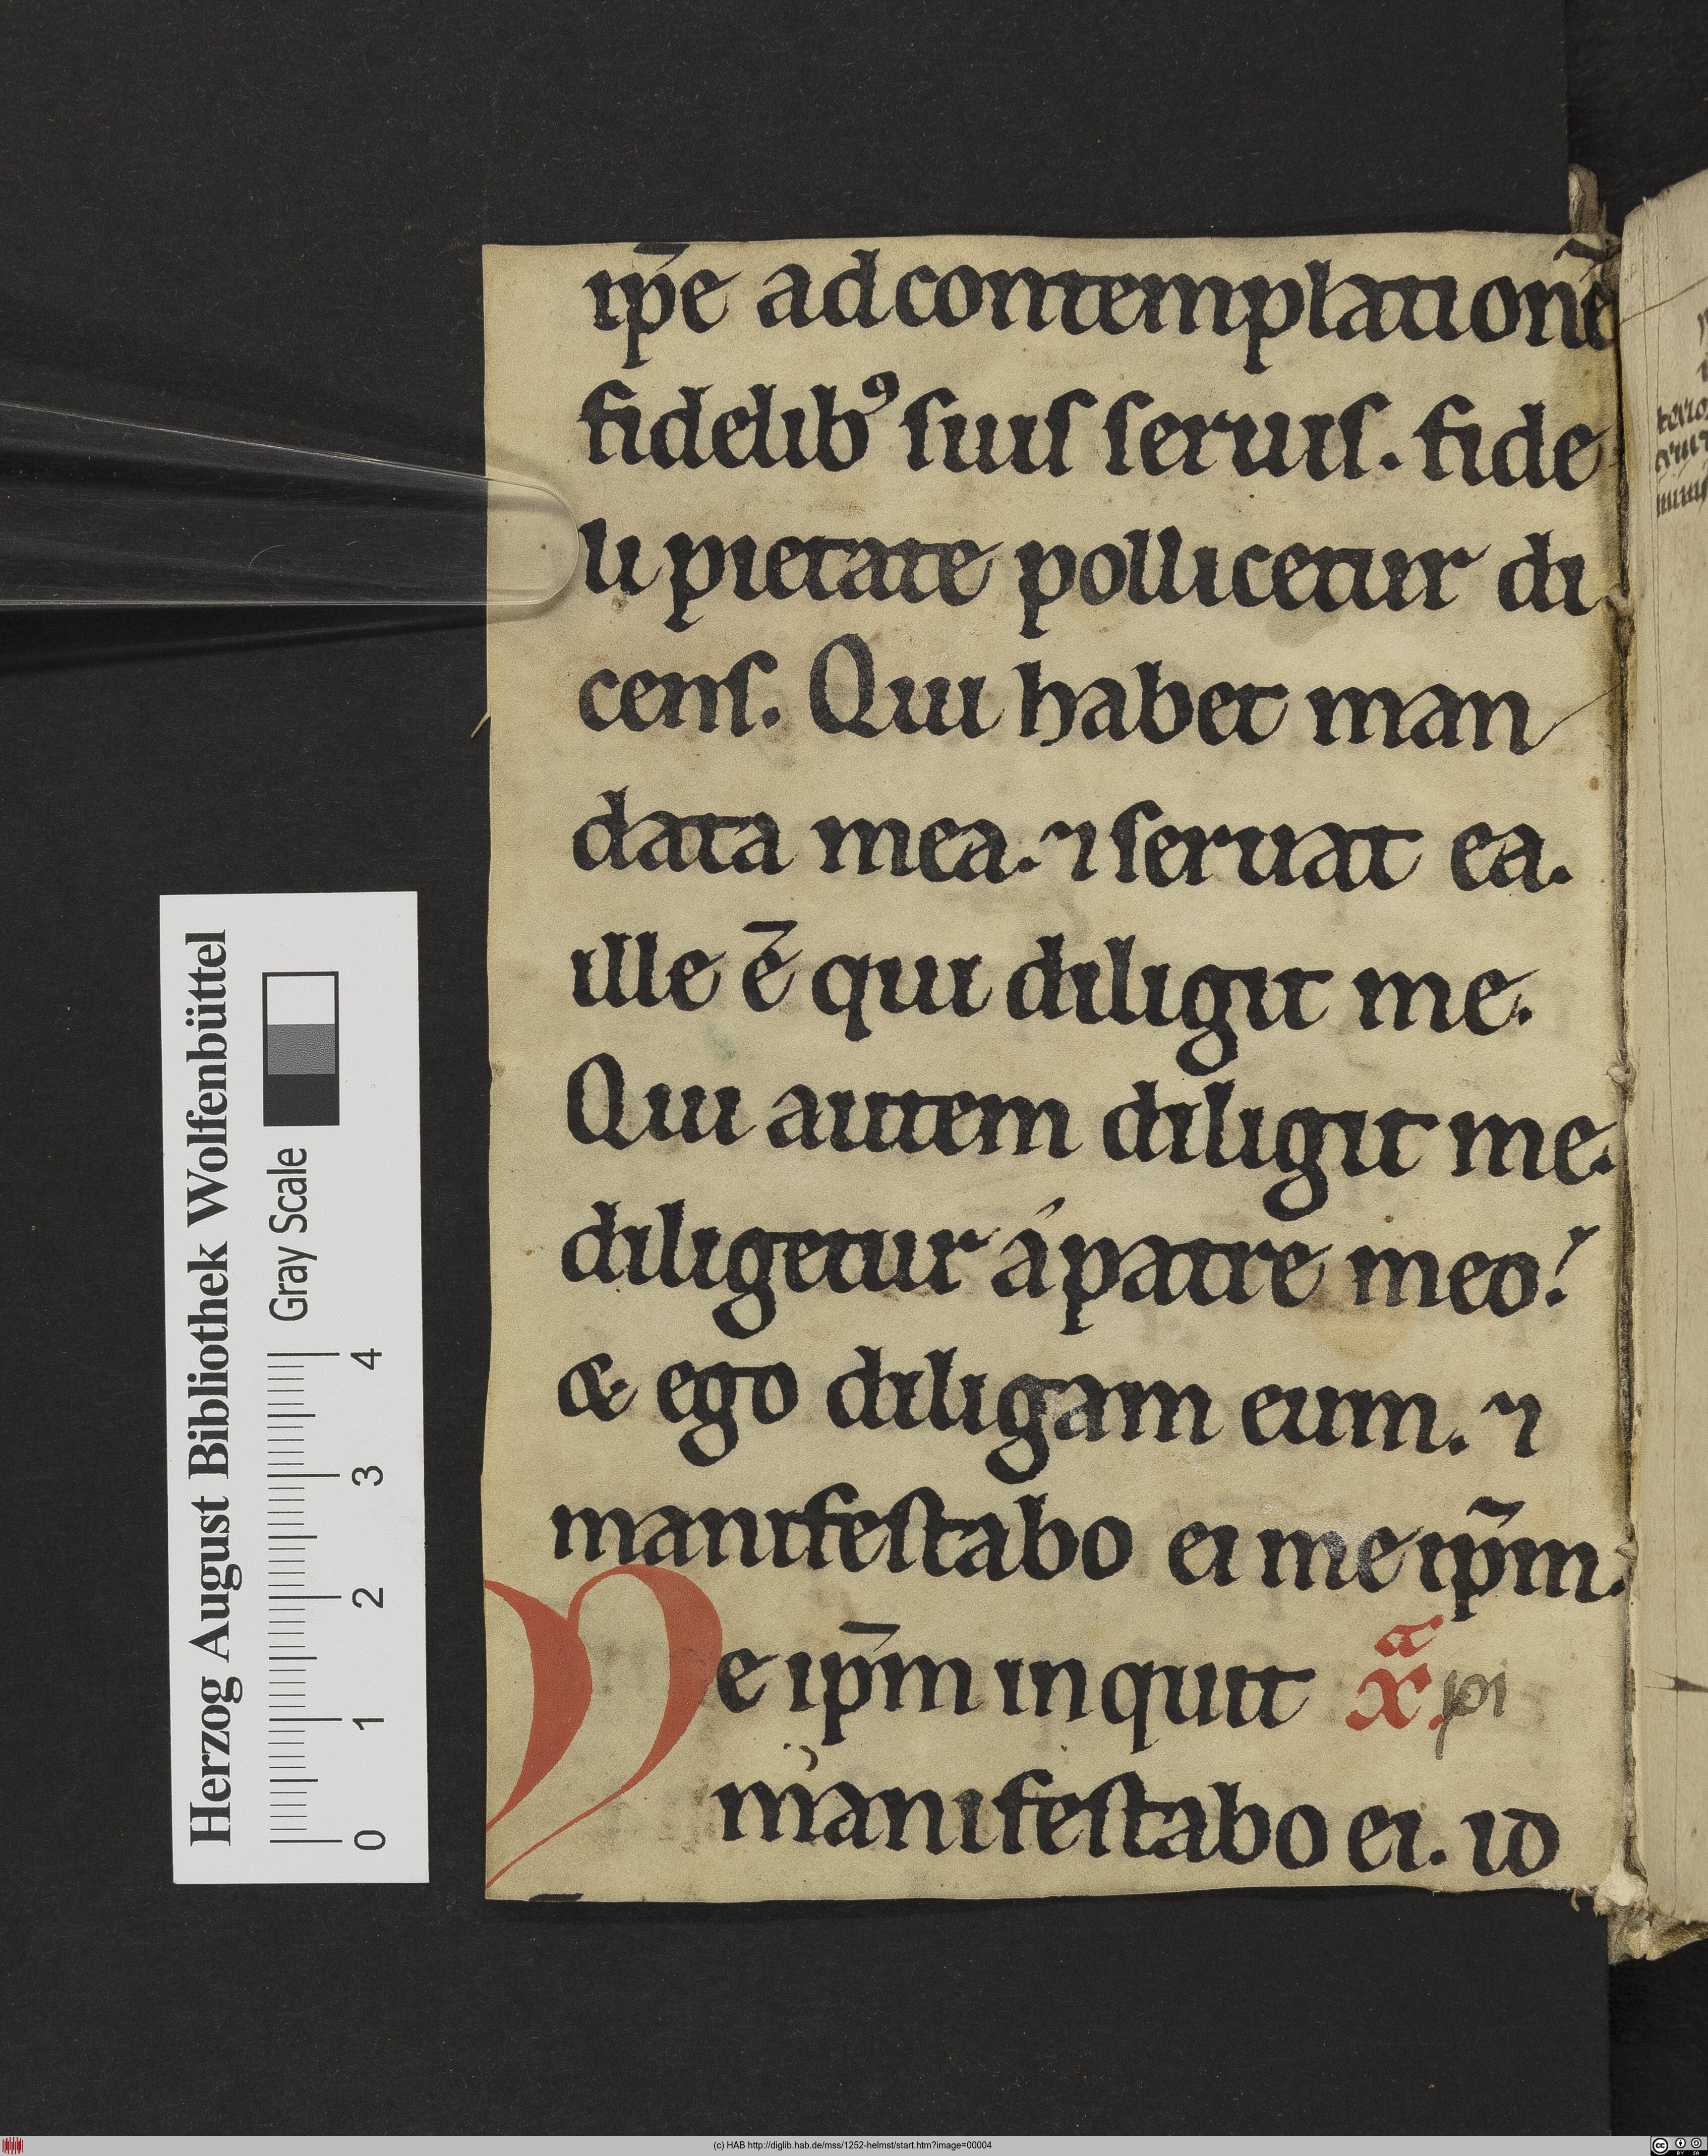 ip̄e ad contemplationē
fidelibꝰ ſuiſ ſeruiſ. fide
li pietate pollicetur di
cenſ. Qui habet man
data mea. ⁊ ſeruat ea.
ille ē qui diligit me.
Qui autem diligit me.
diligetur á patre meo.
& ego diligam eum. ⁊
manifeſtabo ei me ip̄m.
Me ip̄m inquit xͣ. pi
manifeſtabo ei. id
Herzog August Bibliothek Wolfenbüttel
0 1 2 3 4 Gray Scale
(c) HAB http://diglib.hab.de/mss/1252-helmst/start.htm?image=00004